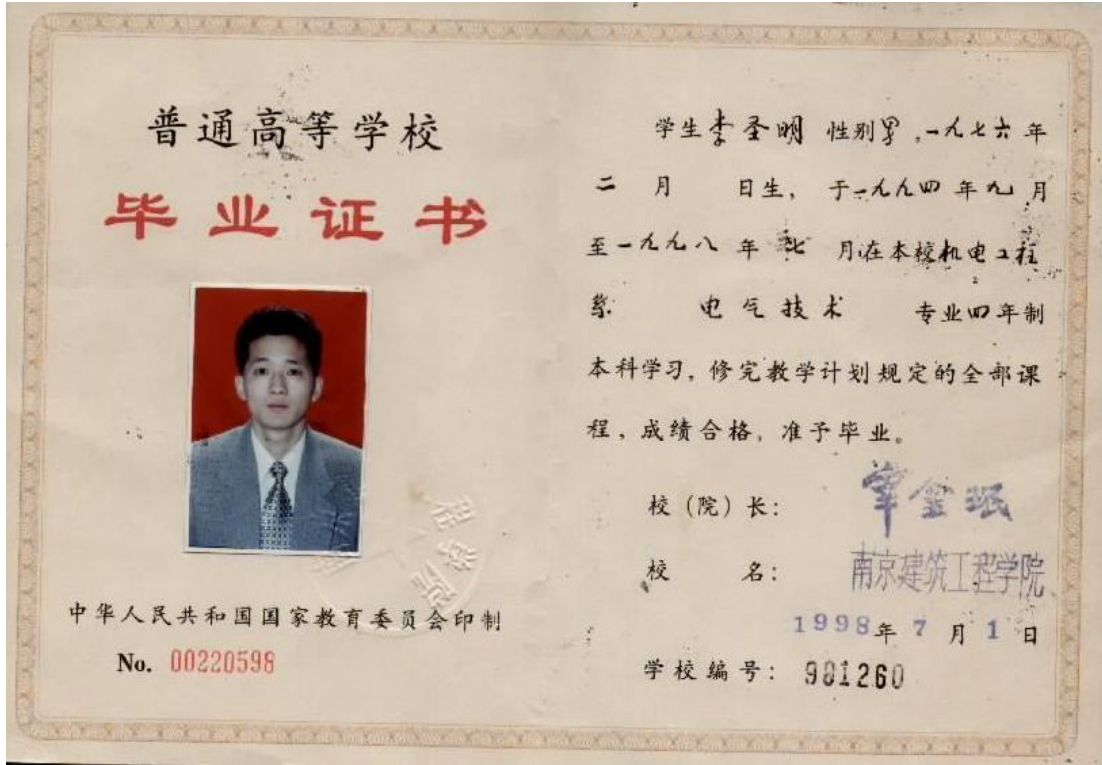 普通高等学校
毕业证书
中华人民共和国国家教育委员会印制
No. 00220598
学生李圣明 性别男,一九七六年
二 月 日生, 于一九九四年九月
至一九九八年 七 月在本校机电工程
系 电气技术 专业四年制
本科学习,修完教学计划规定的全部课
程,成绩合格,准予毕业。
校(院)长:
校 名: 南京建筑工程学院
1998年 7 月 1 日
学校编号: 981260